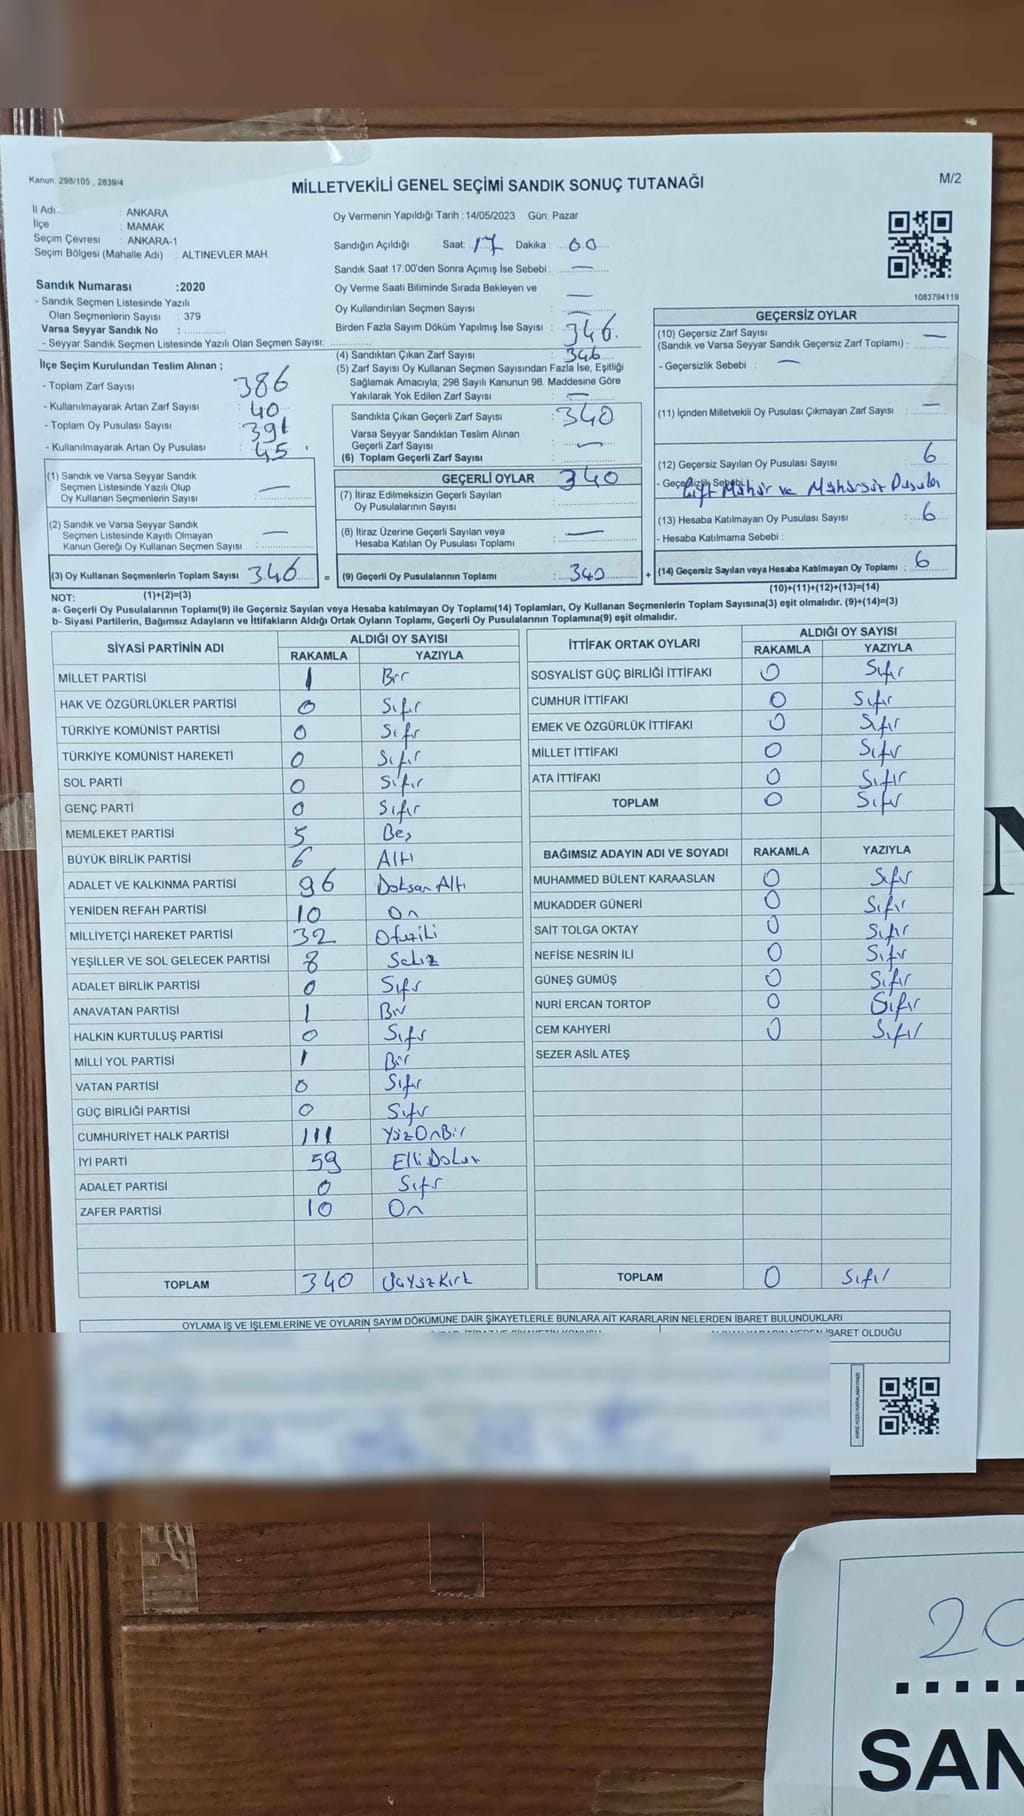 Kanun: 298/105 , 2839/4
MİLLETVEKİLİ GENEL SEÇİMİ SANDIK SONUÇ TUTANAĞI
M/2
İl Adı : ANKARA
İlçe : MAMAK
Seçim Çevresi : ANKARA-1
Seçim Bölgesi (Mahalle Adı) : ALTINEVLER MAH.
Sandık Numarası :2020
- Sandık Seçmen Listesinde Yazılı
Olan Seçmenlerin Sayısı : 379
Varsa Seyyar Sandık No :
- Seyyar Sandık Seçmen Listesinde Yazılı Olan Seçmen Sayısı:
Oy Vermenin Yapıldığı Tarih : 14/05/2023 Gün: Pazar
Sandığın Açıldığı Saat: 17 Dakika : 00
Sandık Saat 17:00'den Sonra Açımış İse Sebebi : —
Oy Verme Saati Bitiminde Sırada Bekleyen ve
Oy Kullandırılan Seçmen Sayısı : —
Birden Fazla Sayım Döküm Yapılmış İse Sayısı : 346
1083794119
İlçe Seçim Kurulundan Teslim Alınan ;
- Toplam Zarf Sayısı : 386
- Kullanılmayarak Artan Zarf Sayısı : 40
- Toplam Oy Pusulası Sayısı : 391
- Kullanılmayarak Artan Oy Pusulası : 45
(1) Sandık ve Varsa Seyyar Sandık
Seçmen Listesinde Yazılı Olup
Oy Kullanan Seçmenlerin Sayısı : —
(2) Sandık ve Varsa Seyyar Sandık
Seçmen Listesinde Kayıtlı Olmayan
Kanun Gereği Oy Kullanan Seçmen Sayısı : —
(3) Oy Kullanan Seçmenlerin Toplam Sayısı 346
(1)+(2)=(3)
(4) Sandıktan Çıkan Zarf Sayısı : 346
(5) Zarf Sayısı Oy Kullanan Seçmen Sayısından Fazla İse, Eşitliği
Sağlamak Amacıyla, 298 Sayılı Kanunun 98. Maddesine Göre
Yakılarak Yok Edilen Zarf Sayısı : —
Sandıkta Çıkan Geçerli Zarf Sayısı : 340
Varsa Seyyar Sandıktan Teslim Alınan
Geçerli Zarf Sayısı : —
(6) Toplam Geçerli Zarf Sayısı :
GEÇERLİ OYLAR 340
(7) İtiraz Edilmeksizin Geçerli Sayılan
Oy Pusulalarının Sayısı :
(8) İtiraz Üzerine Geçerli Sayılan veya
Hesaba Katılan Oy Pusulası Toplamı : —
= (9) Geçerli Oy Pusulalarının Toplamı : 340
GEÇERSİZ OYLAR
(10) Geçersiz Zarf Sayısı
(Sandık ve Varsa Seyyar Sandık Geçersiz Zarf Toplamı) : —
- Geçersizlik Sebebi : —
(11) İçinden Milletvekili Oy Pusulası Çıkmayan Zarf Sayısı : —
(12) Geçersiz Sayılan Oy Pusulası Sayısı : 6
- Geçersizlik Sebebi : Çift Mühür ve Mühürsüz Pusula
(13) Hesaba Katılmayan Oy Pusulası Sayısı : 6
- Hesaba Katılmama Sebebi :
+ (14) Geçersiz Sayılan veya Hesaba Katılmayan Oy Toplamı : 6
(10)+(11)+(12)+(13)=(14)
NOT:
a- Geçerli Oy Pusulalarının Toplamı(9) ile Geçersiz Sayılan veya Hesaba katılmayan Oy Toplamı(14) Toplamları, Oy Kullanan Seçmenlerin Toplam Sayısına(3) eşit olmalıdır. (9)+(14)=(3)
b- Siyasi Partilerin, Bağımsız Adayların ve İttifakların Aldığı Ortak Oyların Toplamı, Geçerli Oy Pusulalarının Toplamına(9) eşit olmalıdır.
SİYASİ PARTİNİN ADI ALDIĞI OY SAYISI
RAKAMLA YAZIYLA
MİLLET PARTİSİ 1 Bir
HAK VE ÖZGÜRLÜKLER PARTİSİ 0 Sıfır
TÜRKİYE KOMÜNİST PARTİSİ 0 Sıfır
TÜRKİYE KOMÜNİST HAREKETİ 0 Sıfır
SOL PARTİ 0 Sıfır
GENÇ PARTİ 0 Sıfır
MEMLEKET PARTİSİ 5 Beş
BÜYÜK BİRLİK PARTİSİ 6 Altı
ADALET VE KALKINMA PARTİSİ 96 Doksan Altı
YENİDEN REFAH PARTİSİ 10 On
MİLLİYETÇİ HAREKET PARTİSİ 32 Otuziki
YEŞİLLER VE SOL GELECEK PARTİSİ 8 Sekiz
ADALET BİRLİK PARTİSİ 0 Sıfır
ANAVATAN PARTİSİ 1 Bir
HALKIN KURTULUŞ PARTİSİ 0 Sıfır
MİLLİ YOL PARTİSİ 1 Bir
VATAN PARTİSİ 0 Sıfır
GÜÇ BİRLİĞİ PARTİSİ 0 Sıfır
CUMHURİYET HALK PARTİSİ 111 YüzOnBir
İYİ PARTİ 59 ElliDokuz
ADALET PARTİSİ 0 Sıfır
ZAFER PARTİSİ 10 On
TOPLAM 340 ÜçYüzKırk
İTTİFAK ORTAK OYLARI ALDIĞI OY SAYISI
RAKAMLA YAZIYLA
SOSYALİST GÜÇ BİRLİĞİ İTTİFAKI 0 Sıfır
CUMHUR İTTİFAKI 0 Sıfır
EMEK VE ÖZGÜRLÜK İTTİFAKI 0 Sıfır
MİLLET İTTİFAKI 0 Sıfır
ATA İTTİFAKI 0 Sıfır
TOPLAM 0 Sıfır
BAĞIMSIZ ADAYIN ADI VE SOYADI RAKAMLA YAZIYLA
MUHAMMED BÜLENT KARAASLAN 0 Sıfır
MUKADDER GÜNERİ 0 Sıfır
SAİT TOLGA OKTAY 0 Sıfır
NEFİSE NESRİN İLİ 0 Sıfır
GÜNEŞ GÜMÜŞ 0 Sıfır
NURİ ERCAN TORTOP 0 Sıfır
CEM KAHYERİ 0 Sıfır
SEZER ASİL ATEŞ
TOPLAM 0 Sıfır
OYLAMA İŞ VE İŞLEMLERİNE VE OYLARIN SAYIM DÖKÜMÜNE DAİR ŞİKAYETLERLE BUNLARA AİT KARARLARIN NELERDEN İBARET BULUNDUKLARI
İBARET OLDUĞU
N
20
SAN